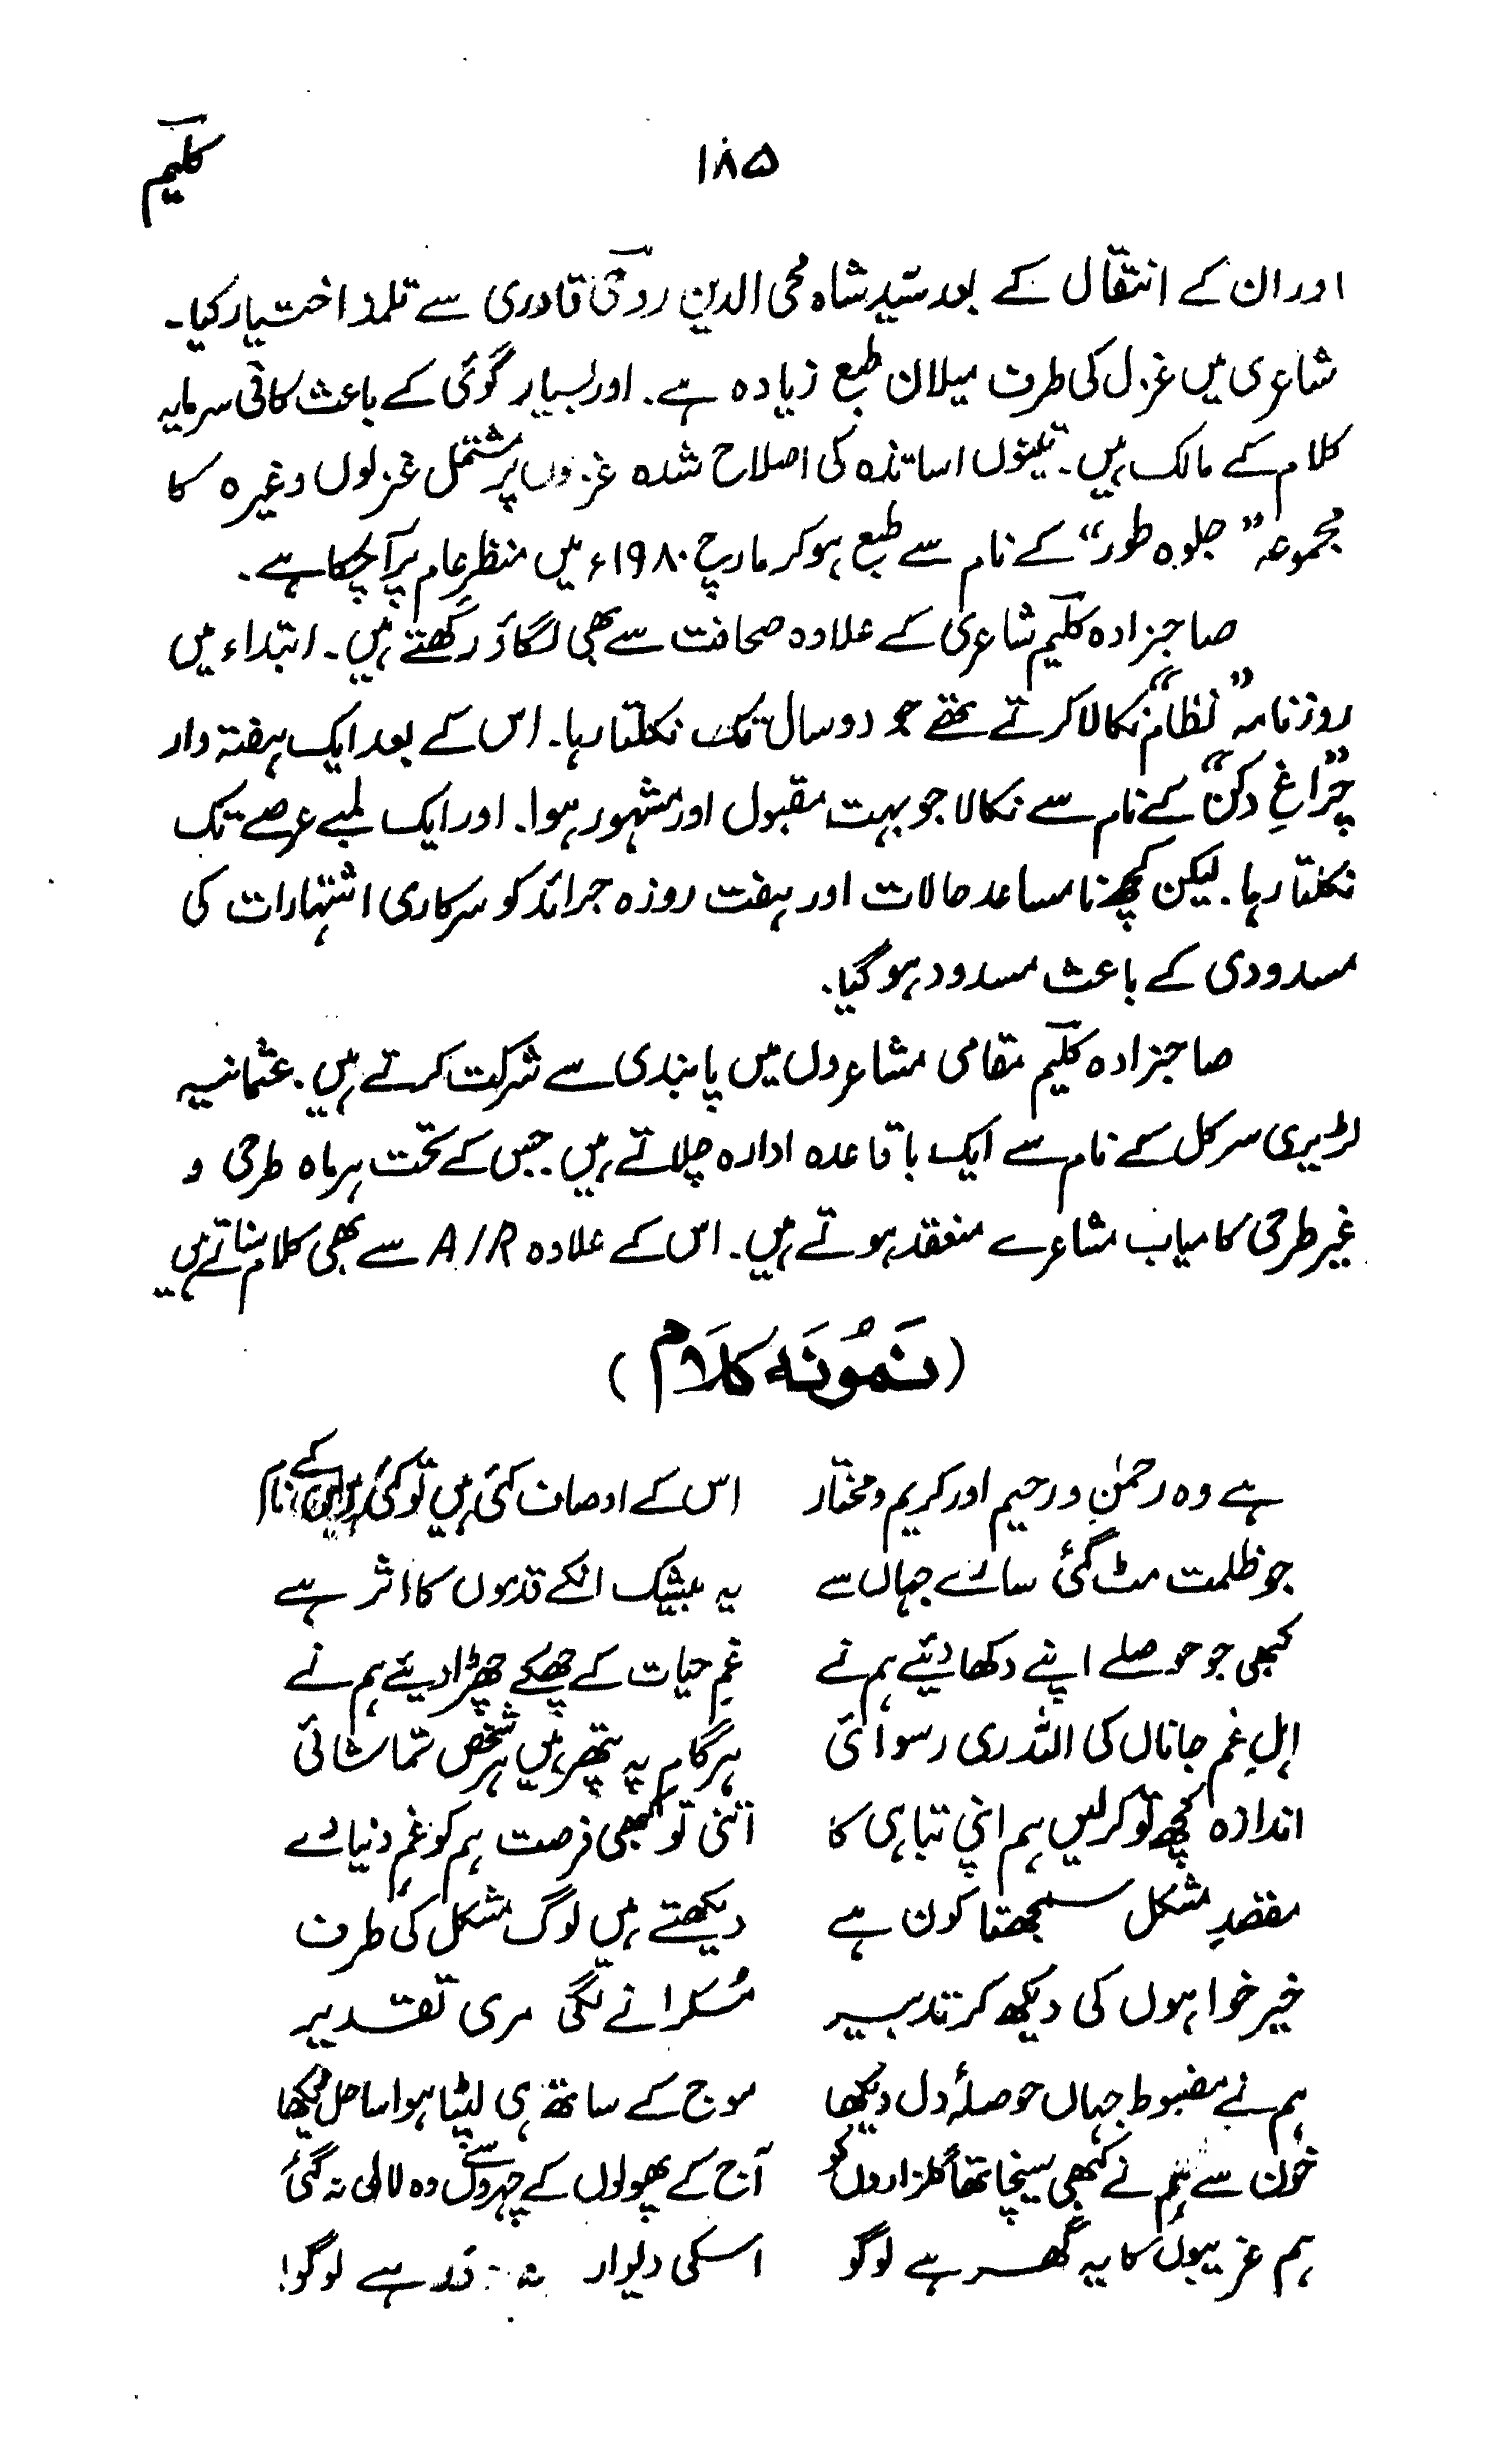 ۱۸۵
کلیم
اور ان کے انتقال کے بعد سید شاہ محی الدین رومی قادری سے تلمذ اختیار کیا۔
شاعری میں غزل کی طرف میلان طبع زیادہ ہے۔ اور بسیار گوئی کے باعث کافی سرمایہ
کلام کے مالک ہیں۔ تینوں اساتذہ کی اصلاح شدہ غزلوں پر مشتمل غزلوں وغیرہ کا
مجموعہ "جلوہ طور" کے نام سے طبع ہو کر مارچ ۱۹۸۰ء میں منظرِ عام پر آچکا ہے۔
صاحبزادہ کلیم شاعری کے علاوہ صحافت سے بھی لگاؤ رکھتے ہیں۔ ابتداء میں
روزنامہ "نظام" نکالا کرتے تھے جو دو سال تک نکلتا رہا۔ اس کے بعد ایک ہفتہ وار
"چراغِ دکن" کے نام سے نکالا جو بہت مقبول اور مشہور ہوا۔ اور ایک لمبے عرصے تک
نکلتا رہا۔ لیکن کچھ نامساعد حالات اور ہفت روزہ جرائد کو سرکاری اشتہارات کی
مسدودی کے باعث مسدود ہو گیا۔
صاحبزادہ کلیم مقامی مشاعروں میں پابندی سے شرکت کرتے ہیں۔ عثمانیہ
لٹریری سرکل کے نام سے ایک باقاعدہ ادارہ چلاتے ہیں۔ جس کے تحت ہر ماہ طرحی و
غیر طرحی کامیاب مشاعرے منعقد ہوتے ہیں۔ اس کے علاوہ A/R سے بھی کلام سناتے ہیں
(نَمُونَہ کَلَام)
ہے وہ رحمٰن و رحیم اور کریم و مختار اس کے اوصاف کئی ہیں تو کئی کے نام
جو ظلمت مٹ گئی سارے جہاں سے یہ بیشک انکے قدموں کا اثر ہے
کبھی جو حوصلے اپنے دکھا دئیے ہم نے غمِ حیات کے چھکے چھڑا دیئے ہم نے
اہلِ غمِ جاناں کی اللہ ری رسوائی ہر گام پہ پتھر ہیں ہر شخص تماشائی
اندازہ کچھ تو کر لیں ہم اپنی تباہی کا اتنی تو کبھی فرصت ہم کو غمِ دنیا دے
مقصدِ مشکل سمجھتا کون ہے دیکھتے ہیں لوگ مشکل کی طرف
خیر خواہوں کی دیکھ کر تدبیر مُسکرانے لگی مری تقدیر
ہم نے مضبوط جہاں حوصلۂ دل دیکھا موج کے ساتھ ہی لپٹا ہوا ساحل دیکھا
خون سے ہم نے کبھی سینچا تھا گلزاروں کو آج کے پھولوں کے چہروں سے وہ لالی نہ گئی
ہم غریبوں کا یہ گھر ہے لوگو اسکی دیوار نہ در ہے لوگو!